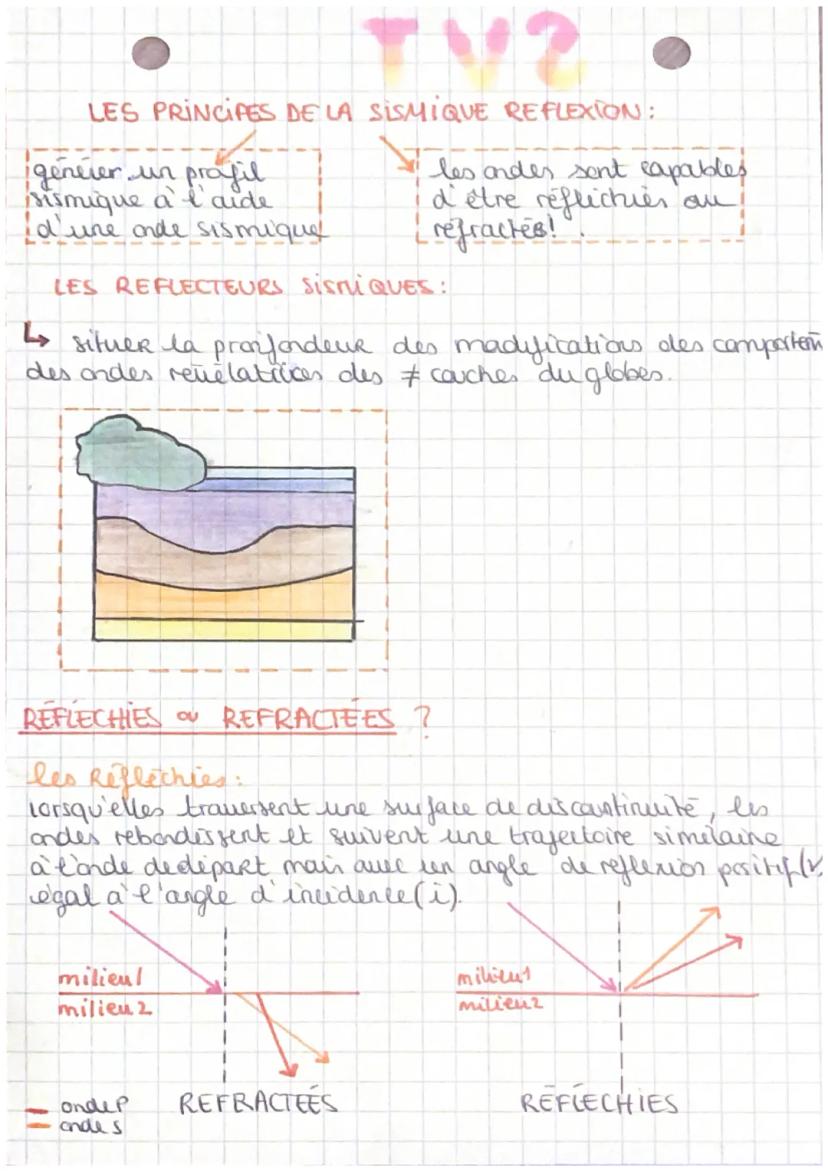 SVT
LES PRINCIPES DE LA SISMIQUE REFLEXION :
générer un profil
sismique à l'aide
d'une onde sismique
les ondes sont capables
d'être réflichiés ou
réfractés! .
LES REFLECTEURS SISMIQUES :
↳ situer la pronfondeur des modifications des comportem
des ondes révélatrices des ≠ couches du globes.
RÉFLÉCHIES ou REFRACTÉES ?
les Réfléchies :
lorsqu'elles traversent une surface de discontinuité, les
ondes rebondissent et suivent une trajectoire similaire
à l'onde de départ mais avec un angle de réflexion positif (r)
égal à l'angle d'incidence (i).
milieu 1
milieu 2
REFRACTEÉS
milieu 1
milieu 2
RÉFLÉCHIES
onde P
onde S